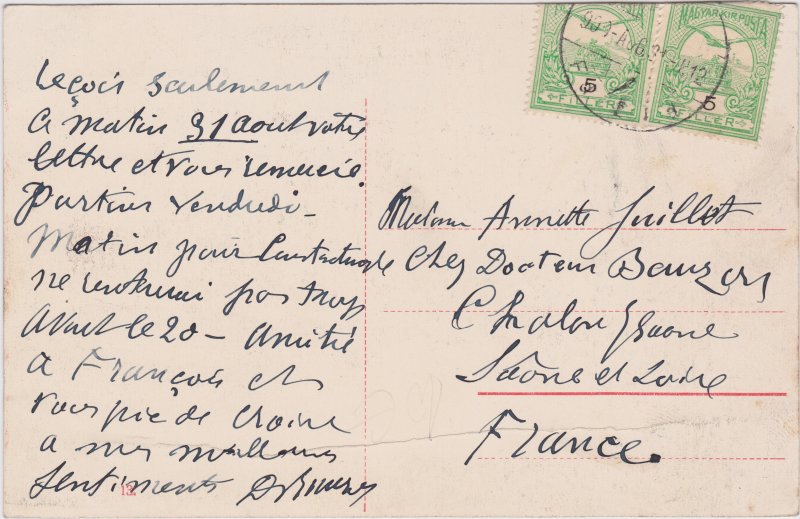 Reçois seulement
ce matin 31 aout votre
lettre et vous remercie.
Partirai Vendredi-
Matin pour Constantinople
ne reviendrai pas trop
avant le 20 - amitié
a François et
vous prie de croire
a mes meilleurs
sentiments DrBauzon
13.
MAGYAR KIR. POSTA
5
FILLÉR
MAGYAR KIR. POSTA
5
FILLÉR
Madame Annette Juillet
Chez Docteur Bauzon
Chalon s/Saone
Saône et Loire
France.